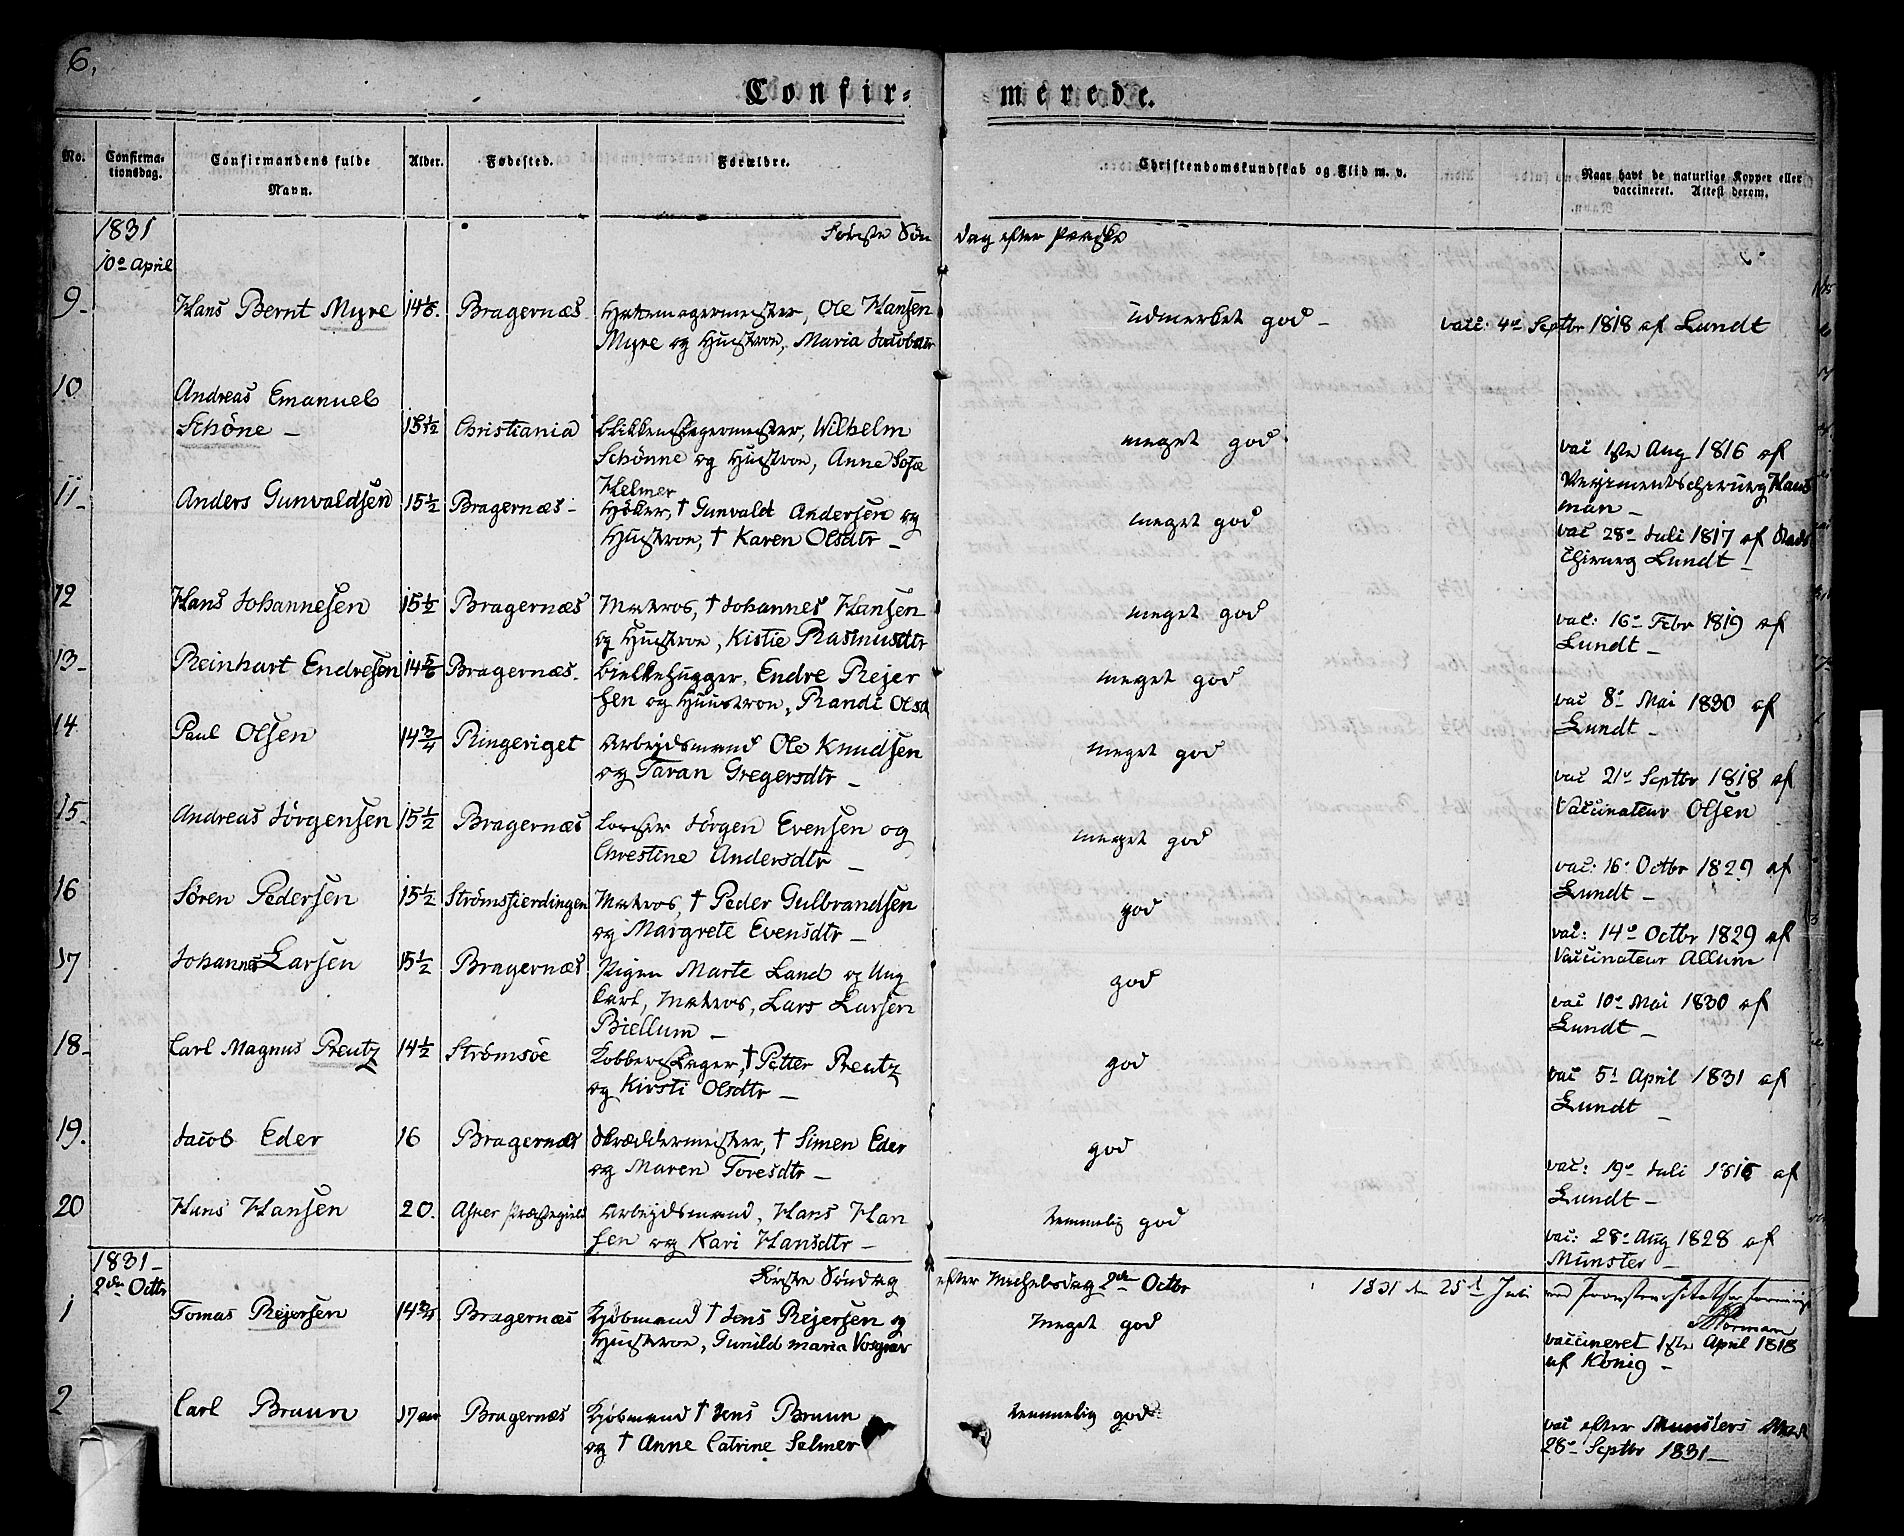 6.
Confir= merede.
No. Confirma-tionsdag. Confirmandens fulde Navn. Alder. Fødested. Forældre. Christendomskundskab og Flid m. v. Naar havt de naturlige Kopper eller vaccineret. Attest derom.
1831 Første Søn dag efter Paaske
10de April
9 Hans Bernt Myre Bragernæs Ole Hansen udmerket god vac: 4de Septbr 1818 af Lundt
Myre og Hustroe, Maria Jacobsdtr
10 Andreas Emanuel
Schöne 15½ Christiania Blikkenslagermester, Wilhelm meget god vac 1ste Aug 1816 af
Schönne og Hustroe, Anne Sofie Regimentschirurg Hans
Helmer man
11 Anders Gunvaldsen 15½ Bragernæs Høker, † Gunvald Andersen og meget god vac 28de Juli 1817 af Raads
Hustroe, † Karen Olsdtr Chirurg Lundt
12 Hans Johannesen 15½ Bragernæs Matros, † Johannes Hansen meget god vac: 16de Febr 1819 af
og Hustroe, Kistie Rasmusdtr Lundt
13 Reinhart Endresen Bragernæs Bielkehugger, Endre Rejer meget god vac 8de Mai 1830 af
sen og Huustroe, Randi Olsd Lundt
14 Paul Olsen 14¾ Ringeriget Arbejdsmand Ole Knudsen meget god vac 21de Septbr 1818 af
og Taran Gregersdtr Vaccinateur Olsen
15 Andreas Jörgensen 15½ Bragernæs Jörgen Evensen og meget god vac: 16de Octbr 1829 af
Chrestine Andersdtr Lundt
16 Sören Pedersen 15½ Strömsfierdingen Matros, † Peder Gulbrandsen god vac: 14de Octbr 1829 af
og Margrete Evensdtr Vaccinateur Allum
17 Johannes Larsen 15½ Bragernæs Pigen Marte Land og Ung god vac 10de Mai 1830 af
karl, Matros, Lars Larsen Lundt
Biellum
18 Carl Magnus Reutz 14½ Strömsöe Kobberslager, † Petter Reutz god vac 5te April 1831 af
og Kirsti Olsdtr Lundt
19. Jacob Eder 16 Bragernæs Skræddermester, † Simen Eder god vac: 19de Juli 1816 af
og Maren Toresdtr Lundt
20 Hans Hansen 20. Asker Præstegield Arbejdsmand, Hans Han temmelig god vac: 28de Aug 1828 af
sen og Kari Hansdtr Münster
1831 Første Søndag efter Michelsdag 2den Octbr 1831 den 25de Juli
2den Octbr
1 Tomas Rejersen 14¾ Bragernæs Kjöbmand † Jens Rejersen og Meget god vaccineret 1ste April 1818
Hustroe, Gunild maria af König
2 Carl Bruun 17 Bragernæs Kjöbmand † Jens Bruun temmelig god vac efter Münsters Attest
og † Anne Catrine Selmer 28de Septbr 1831